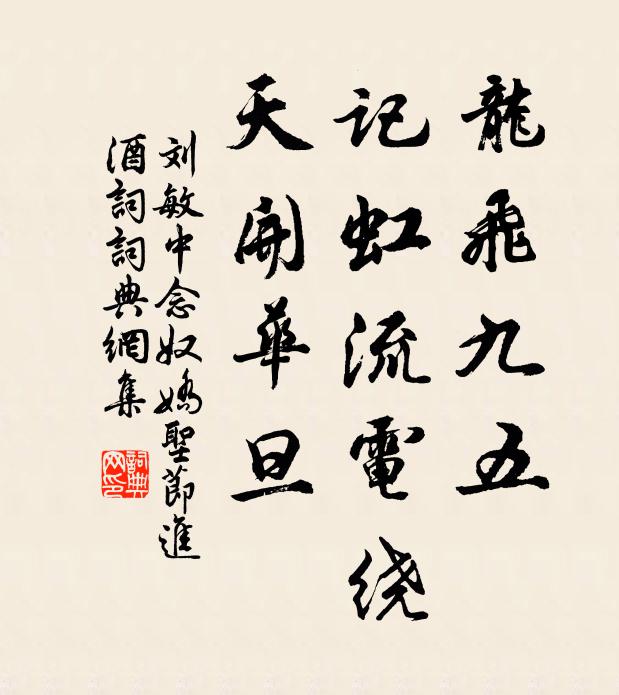 龍飛九五
记虹流電绕
天開華旦
刘敏中念奴嬌聖節進
酒詞詞典網集
詞典
网印